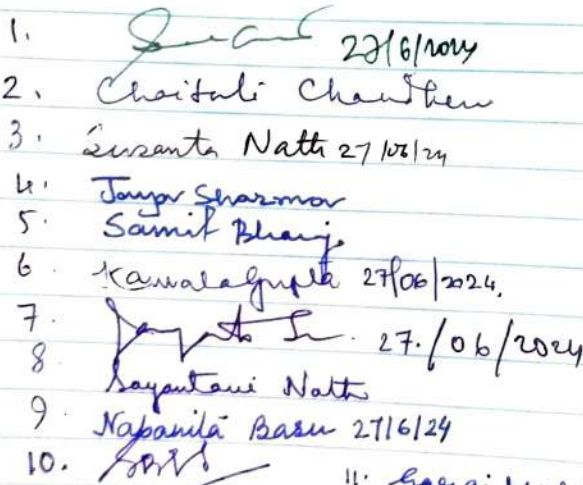 1. 27/6/2024
2. Chaitali Chaudhuri
3. Susanta Nath 27/06/24
4. Jaya Sharma
5. Samit Bhanja
6. Kamala Gupta 27/06/2024.
7. 27./06/2024
8 Sayantani Nath
9. Nabanita Basu 27/6/24
10.
11.